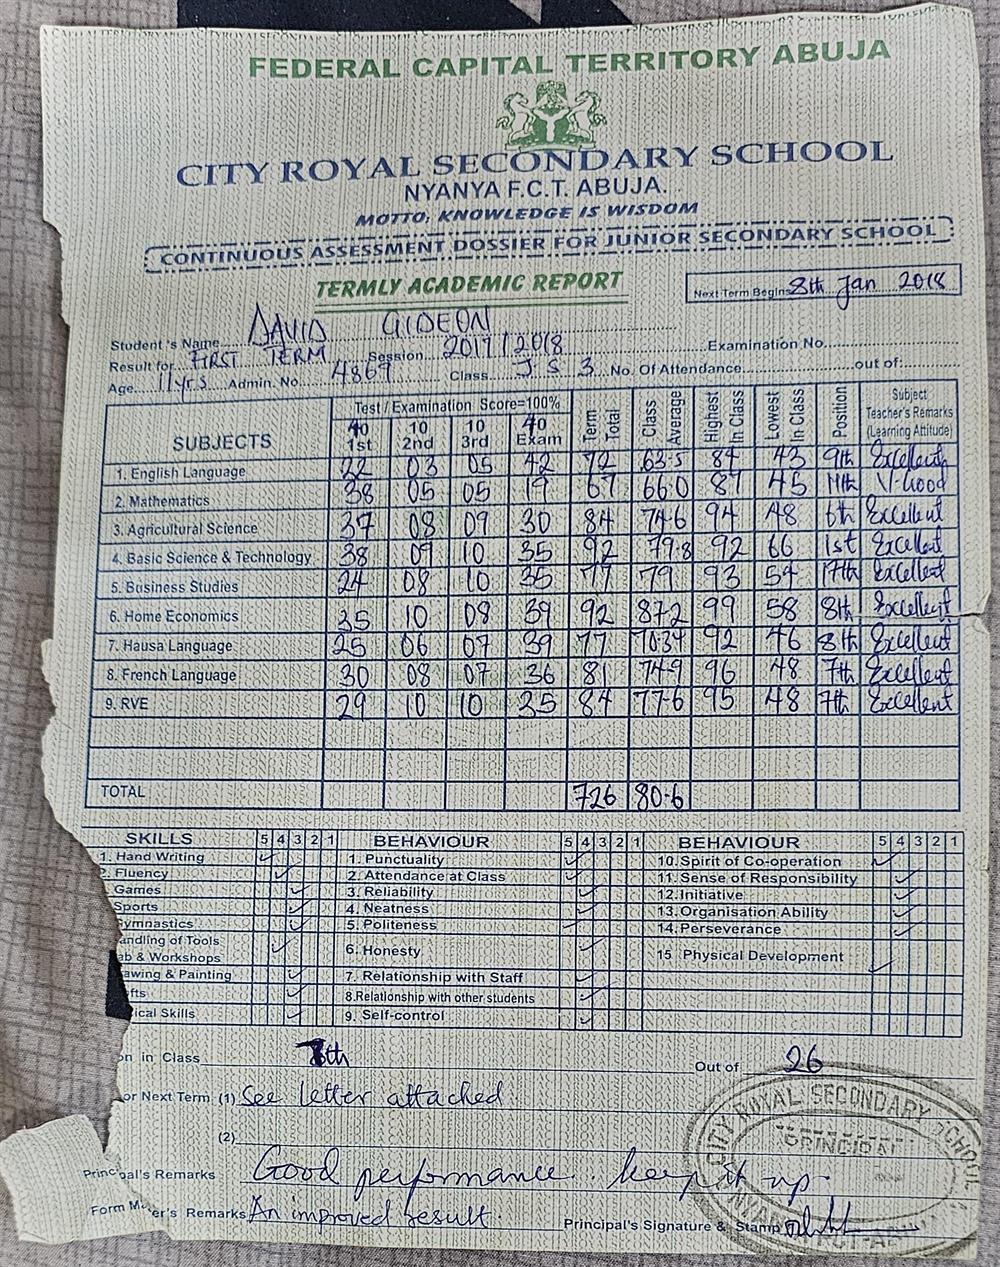 FEDERAL CAPITAL TERRITORY ABUJA
CITY ROYAL SECONDARY SCHOOL
NYANYA F.C.T. ABUJA.
MOTTO: KNOWLEDGE IS WISDOM
CONTINUOUS ASSESSMENT DOSSIER FOR JUNIOR SECONDARY SCHOOL
TERMLY ACADEMIC REPORT
Next Term Begins 8th Jan 2018
Student's Name DAVID GIDEON
Result for FIRST TERM Session 2017/2018 Examination No.
Age 11yrs Admin. No. 4869 Class J.S.3 No. Of Attendance out of:
SUBJECTS Test / Examination Score=100% Term Total Class Average Highest In Class Lowest In Class Position Subject Teacher's Remarks (Learning Attitude)
40 1st 10 2nd 10 3rd 40 Exam
1. English Language 22 03 05 42 72 63.5 84 43 9th Excellent
2. Mathematics 38 05 05 19 67 66.0 87 45 11th V-Good
3. Agricultural Science 37 08 09 30 84 74.6 94 48 6th Excellent
4. Basic Science & Technology 38 09 10 35 92 79.8 92 66 1st Excellent
5. Business Studies 24 08 10 35 77 79 93 54 17th Excellent
6. Home Economics 35 10 08 39 92 87.2 99 58 8th Excellent
7. Hausa Language 25 06 07 39 77 70.34 92 46 8th Excellent
8. French Language 30 08 07 36 81 74.9 96 48 7th Excellent
9. RVE 29 10 10 35 84 77.6 95 48 7th Excellent
TOTAL 726 80.6
SKILLS 5 4 3 2 1 BEHAVIOUR 5 4 3 2 1 BEHAVIOUR 5 4 3 2 1
1. Hand Writing 1. Punctuality 10. Spirit of Co-operation
2. Fluency 2. Attendance at Class 11. Sense of Responsibility
Games 3. Reliability 12. Initiative
Sports 4. Neatness 13. Organisation Ability
ymnastics 5. Politeness 14. Perseverance
andling of Tools 6. Honesty 15 Physical Development
ab & Workshops
awing & Painting 7. Relationship with Staff
fts 8. Relationship with other students
ical Skills 9. Self-control
on in Class 7th Out of 26
or Next Term (1) See letter attached
(2)
Principal's Remarks Good performance. keep it up.
Form Ma er's Remarks An improved result. Principal's Signature & Stamp
CITY ROYAL SECONDARY SCHOOL
PRINCIPAL